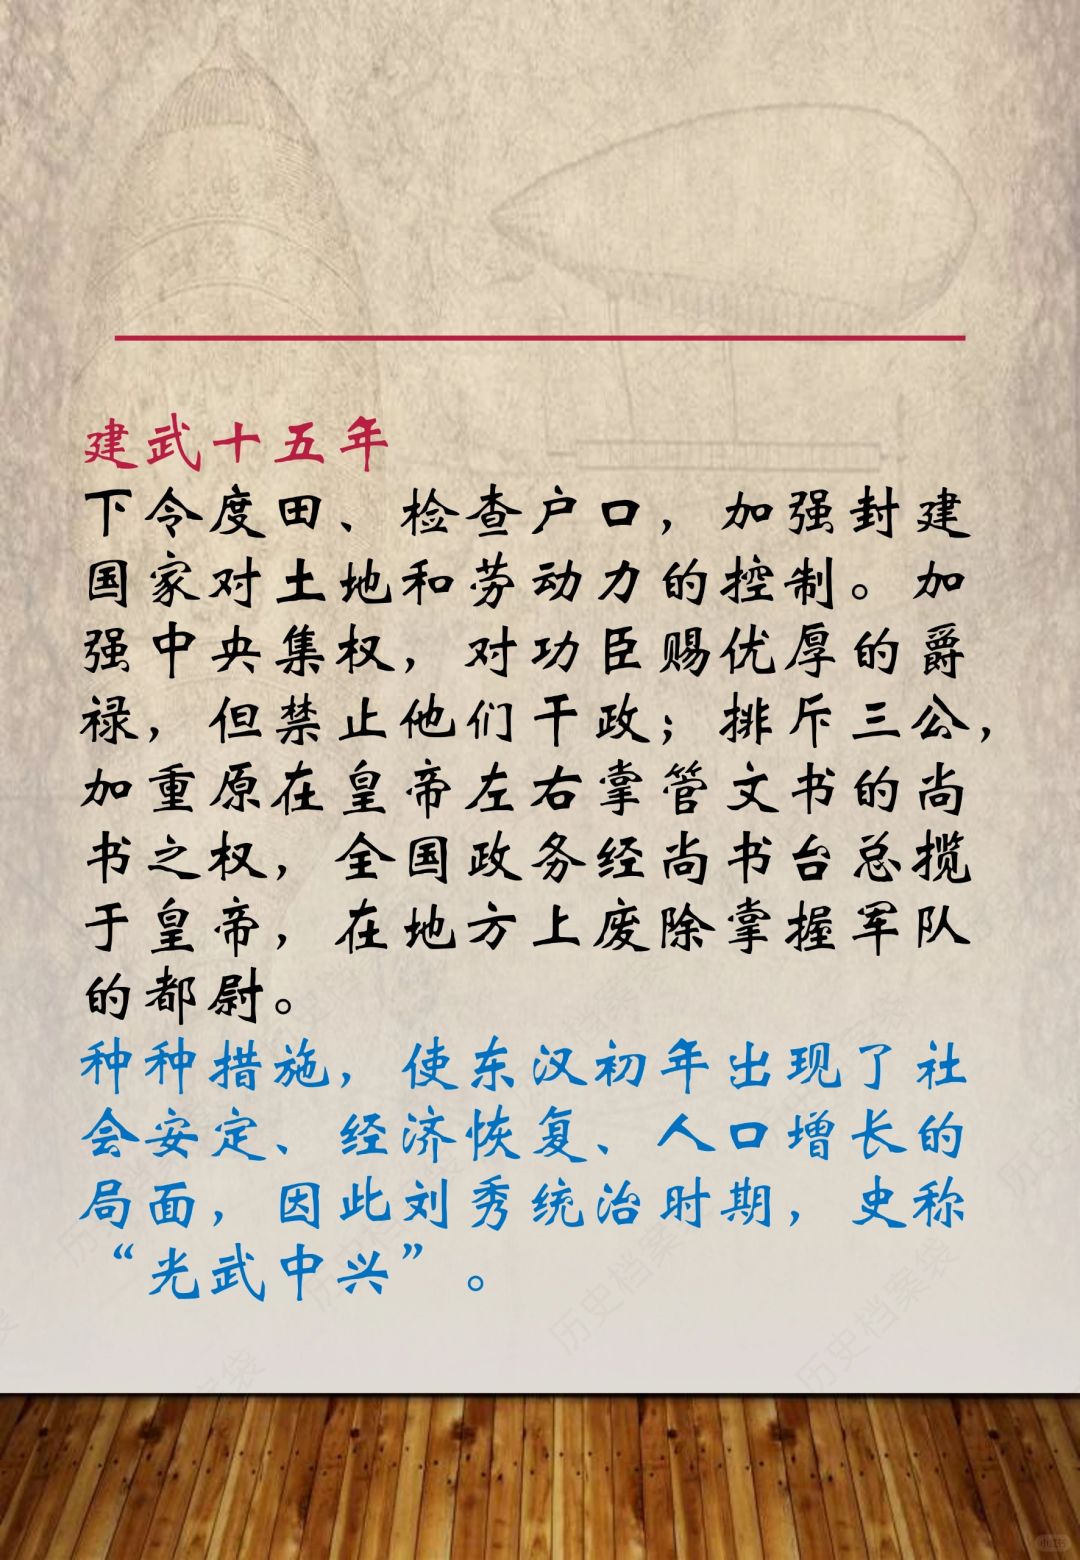 建武十五年
下令度田、检查户口，加强封建
国家对土地和劳动力的控制。加
强中央集权，对功臣赐优厚的爵
禄，但禁止他们干政；排斥三公，
加重原在皇帝左右掌管文书的尚
书之权，全国政务经尚书台总揽
于皇帝，在地方上废除掌握军队
的都尉。
种种措施，使东汉初年出现了社
会安定、经济恢复、人口增长的
局面，因此刘秀统治时期，史称
“光武中兴”。
历史档案袋
历史档案袋
历史档案袋
历史档案袋
小红书